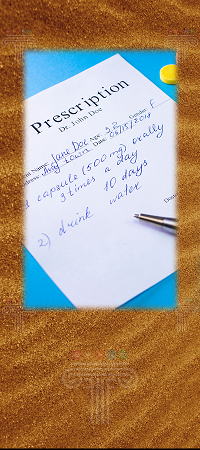 Prescription
Dr. John Doe
Name: Jane Doe Age: 32 Gender: F
Date: 08/15/2018
capsule (500 mg) orally
3 times a day
10 days
2) drink water